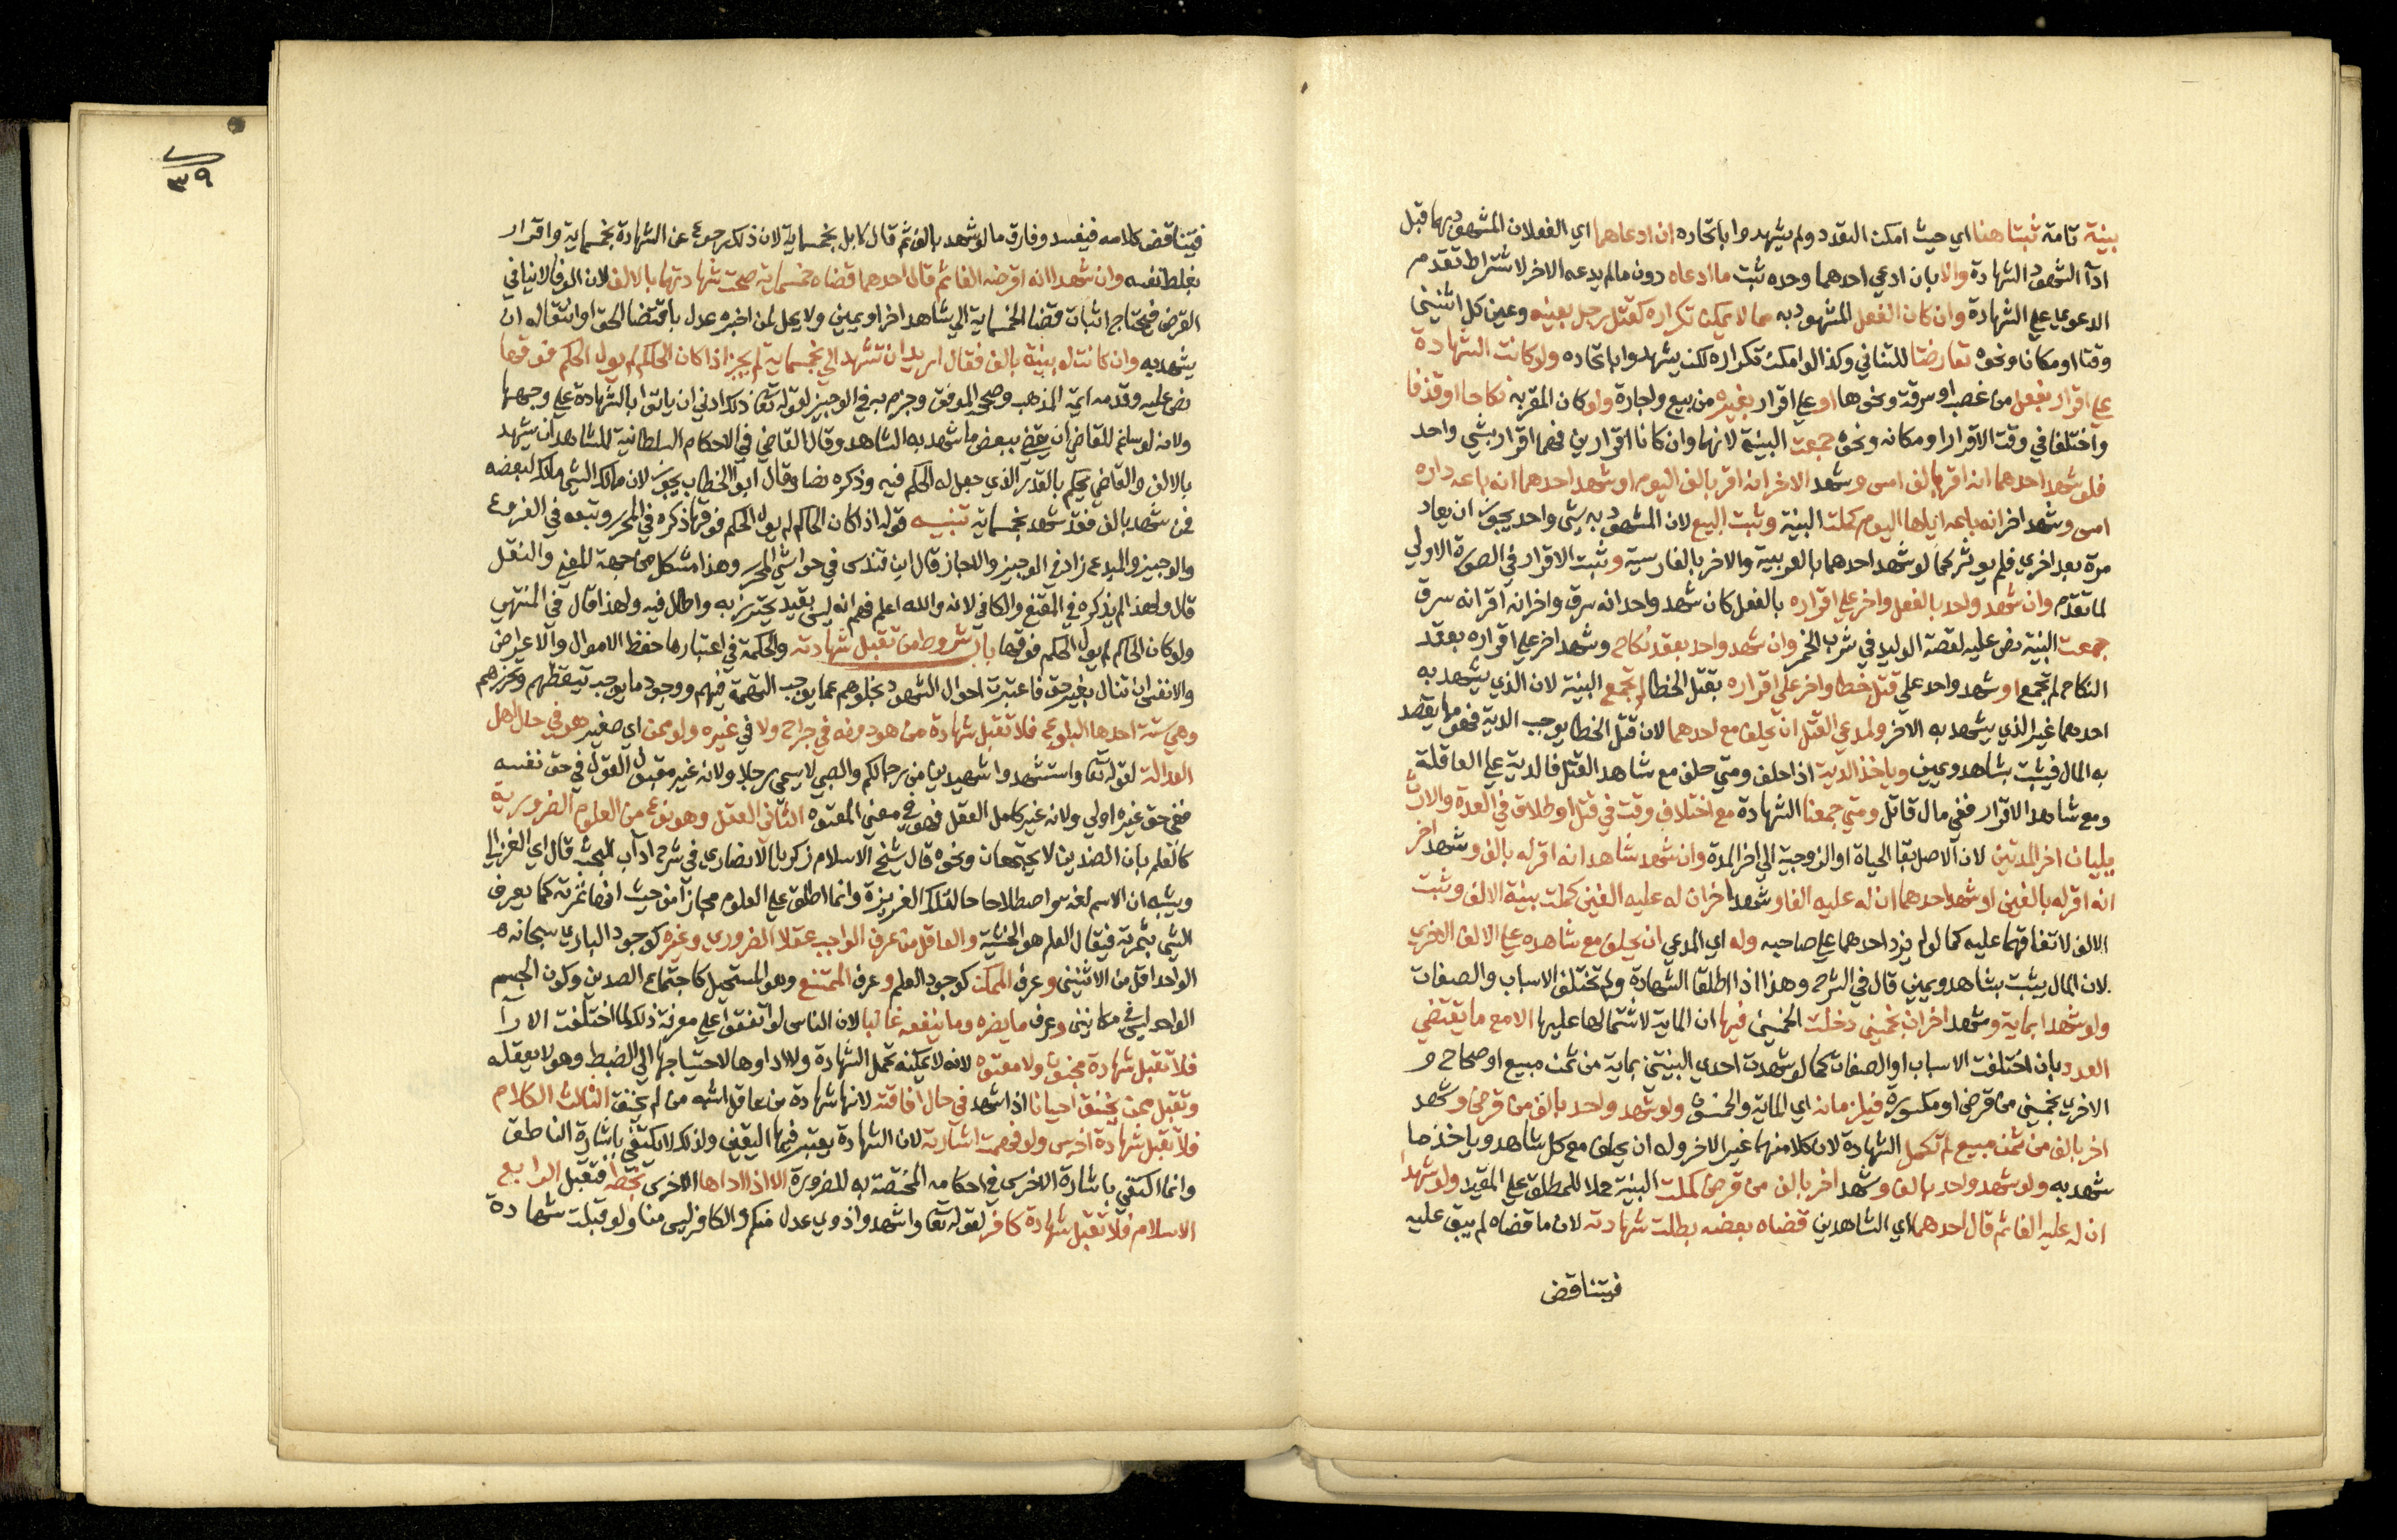 بينة تامة ثبتا هنا اي حيث امكن التعدد ولم يشهدوا باتحاده ان ادعاهما اي الفعلان المشهود بهما قبل
ادآ الشهود الشهادة والا بان ادعي احدهما وحده ثبت ما ادعاه دون ما لم يدعه الاخر لاشتراط تقدم
الدعوي علي الشهادة وان كان الفعل المشهود به مما لا يمكن تكراره كقتل رجل بعينه وعين كل اثنين
وقتا او مكانا ونحوه تعارضتا للتنافي وكذا لو امكن تكراره لكن يشهدوا باتحاده ولو كانت الشهادة
علي اقرار بفعل من غصب او سرقة ونحوها او علي اقرار بغيره من بيع واجارة ولو كان المقر به نكاحا او قذفا
واختلفا في وقت الاقرار او مكانه ونحوه جمعت البينة لانهما وان كانا اقرارين فهما اقرار بشي واحد
فلو شهد احدهما انه اقر بالف امس وشهد الاخر انه اقر بالف اليوم او شهد احدهما انه باعه داره
امس وشهد اخر انه باعه اياها اليوم كملت البينة وثبت البيع لان المشهود به شي واحد يجوز ان يعاد
مرة بعد اخري فلم يوثر كما لو شهد احدهما بالعربية والاخر بالفارسية وثبت الاقرار في الصورة الاولي
لما تقدم وان شهد واحد بالفعل واخر علي اقراره بالفعل كان شهد واحد انه سرق واخر انه اقر انه سرق
جمعت البينة نص عليه لقصة الوليد في شرب الخمر وان شهد واحد بعقد نكاح وشهد اخر علي اقراره بعقد
النكاح لم تجمع او شهد واحد علي قتل خطا واخر علي اقراره بقتل الخطا لم تجمع البينة لان الذي يشهد به
احدهما غير الذي يشهد به الاخر ولمدعي القتل ان يحلف مع احدهما لان قتل الخطا يوجب الدية فهو مما يقصد
به المال فيثبت بشاهد ويمين وياخذ الدية اذا حلف ومتي حلف مع شاهد القتل فالدية علي العاقلة
ومع شاهد الاقرار ففي مال قاتل ومتي جمعنا الشهادة مع اختلاف وقت في قتل او طلاق في العدة والارث
يليان اخر المدتين لان الاصل بقا الحياة او الزوجية الي اخر المدة وان شهد شاهد انه اقر له بالف وشهد اخر
انه اقر له بالفين او شهد احدهما ان له عليه الفا وشهد اخر ان له عليه الفين كملت بينة الالف وثبت
الالف لاتفاقهما عليه كما لو لم يزد احدهما علي صاحبه وله اي المدعي ان يحلف مع شاهده علي الالف الاخري
لان المال يثبت بشاهد ويمين قال في الشرح وهذا اذا اطلقا الشهادة ولم تختلف الاسباب والصفات
ولو شهدا بماية وشهد اخران بخمسين دخلت الخمسين فيها ان الماية لاشتمالها عليها الا مع ما يقتضي
العدد بان اختلفت الاسباب او الصفات كما لو شهدت احدي البينتين بماية من ثمن مبيع او صحاح و
الاخري بخمسين من قرض او مكسورة فيلزمانه اي الماية والخمسون ولو شهد واحد بالف من قرض وشهد
اخر بالف من ثمن مبيع لم تكمل الشهادة لان كلا منهما غير الاخر وله ان يحلف مع كل شاهد وياخذ ما
شهد به ولو شهد واحد بالف وشهد اخر بالف من قرض كملت البينة حملا للمطلق علي المقيد ولو شهدا
ان له عليه الفا ثم قال احدهما اي الشاهدين قضاه بعضه بطلت شهادته لان ما قضاه لم يبق عليه
فيتناقض
٣٩
فيتناقض كلامه فيفسد وفارق ما لو شهد بالف ثم قال لا بل بخمسماية لان ذلك رجوع عن الشهادة بخمسماية واقرار
بغلط نفسه وان شهدا انه اقرضه الفا ثم قال احدهما قضاه خمسماية صحت شهادتهما بالالف لان الوفا لا ينافي
القرض فيحتاج اثبات قضا الخمسماية الي شاهد اخر او يمين ولا يحل لمن اخبره عدل باقتضا الحق او انتقاله ان
يشهد به وان كانت له بينة بالف فقال اريد ان تشهدا لي بخمسماية لم يجز اذا كان الحاكم لم يول الحكم فوقها
نص عليه وقدمه اية المذهب وصححه الموفق وجزم به في الوجيز لقوله تعا ذلك ادني ان ياتوا بالشهادة علي وجهها
ولانه لو ساغ للقاضي ان يقضي ببعض ما شهد به الشاهد وقال القاضي في الاحكام السلطانية للشاهد ان يشهد
بالالف والقاضي يحكم بالقدر الذي جعل له الحكم فيه وذكره نصا وقال ابو الخطاب يجوز لان مالك الشي مالك لبعضه
فمن شهد بالف فقد شهد بخمسماية تنبيه قوله اذا كان الحاكم لم يول الحكم فوقها ذكره في المحرر وتبعه في الفروع
والوجيز والمبدع زاد في الوجيز والاجاز قال ابن قندس في حواشي المحرر وهذا مشكل من جهة المعني والنقل
قال ولهذا لم يذكره في المقنع والكافي لانه والله اعلم فهم انه ليس بقيد يحترز به واطال فيه ولهذا قال في المنتهي
ولو كان الحاكم لم يول الحكم فوقها باب شروط من تقبل شهادته والحكمة في اعتبارها حفظ الاموال والاعراض
والانفس ان تنال بغير حق فاعتبرت احوال الشهود بخلوهم عما يوجب التهمة فيهم ووجود ما يوجب تيقظهم وتحرزهم
وهي ستة احدها البلوغ فلا تقبل شهادة من هو دونه في جراح ولا في غيره ولو ممن اي صغير هو في حال اهل
العدالة لقوله تعا واستشهدوا شهيدين من رجالكم والصبي لا يسمي رجلا ولانه غير مقبول القول في حق نفسه
ففي حق غيره اولي ولانه غير كامل العقل فهو في معني المعتوه الثاني العقل وهو نوع من العلوم الضرورية
كالعلم بان الضدين لا يجتمعان ونحوه قال شيخ الاسلام زكريا الانصاري في شرح آداب البحث قال اي الغزالي
ويشبه ان الاسم لغة واصطلاحا لتلك الغريزة وانما اطلق علي العلوم مجازا من حيث انها ثمرته كما يعرف
الشي بثمرته فيقال العلم هو الخشية والعاقل من عرف الواجب عقلا الضروري وغيره كوجود الباري سبحانه
الواحد اقل من الاثنين وعرف الممكن كوجود العلم وعرف الممتنع وهو المستحيل كاجتماع الضدين وكون الجسم
الواحد ليس في مكانين وعرف ما يضره وما ينفعه غالبا لان الناس لو اتفقوا علي معرفة ذلك لما اختلفت الارآ
فلا تقبل شهادة مجنون ولا معتوه لانه لا يمكنه تحمل الشهادة ولا اداوها لاحتياجها الي الضبط وهو لا يعقله
وتقبل ممن يخنق احيانا اذا شهد في حال افاقته لانها شهادة من عاقل اشبه من لم يخنق الثالث الكلام
فلا تقبل شهادة اخرس ولو فهمت اشارته لان الشهادة يعتبر فيها اليقين ولذلك لا يكتفي باشارة الناطق
وانما اكتفي باشارة الاخرس في احكامه المختصة به للضرورة الا اذا اداها الاخرس بخطه فتقبل الرابع
الاسلام فلا تقبل شهادة كافر لقوله تعا واشهدوا ذوي عدل منكم والكافر ليس منا ولو قبلت شهادة